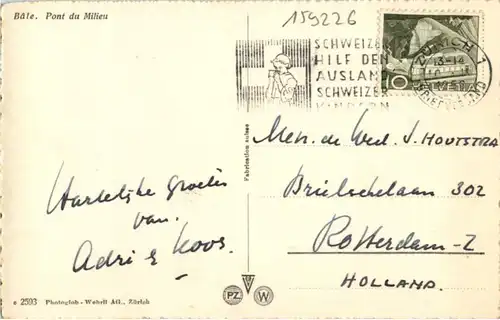 Bâle. Pont du Milieu
159226
SCHWEIZER
HILF DEN
AUSLAND
SCHWEIZER
KINDERN
ZÜRICH 1
13-14
BRIEFVERSAND
10
Men. de Wed. J. HOUTSTRA
Brielschelaan 302
Rotterdam-Z
HOLLAND.
Hartelijke Groeten
van.
Adri & Koos.
Fabrication suisse
e 2593 Photoglob-Wehrli AG., Zürich
PZ
W